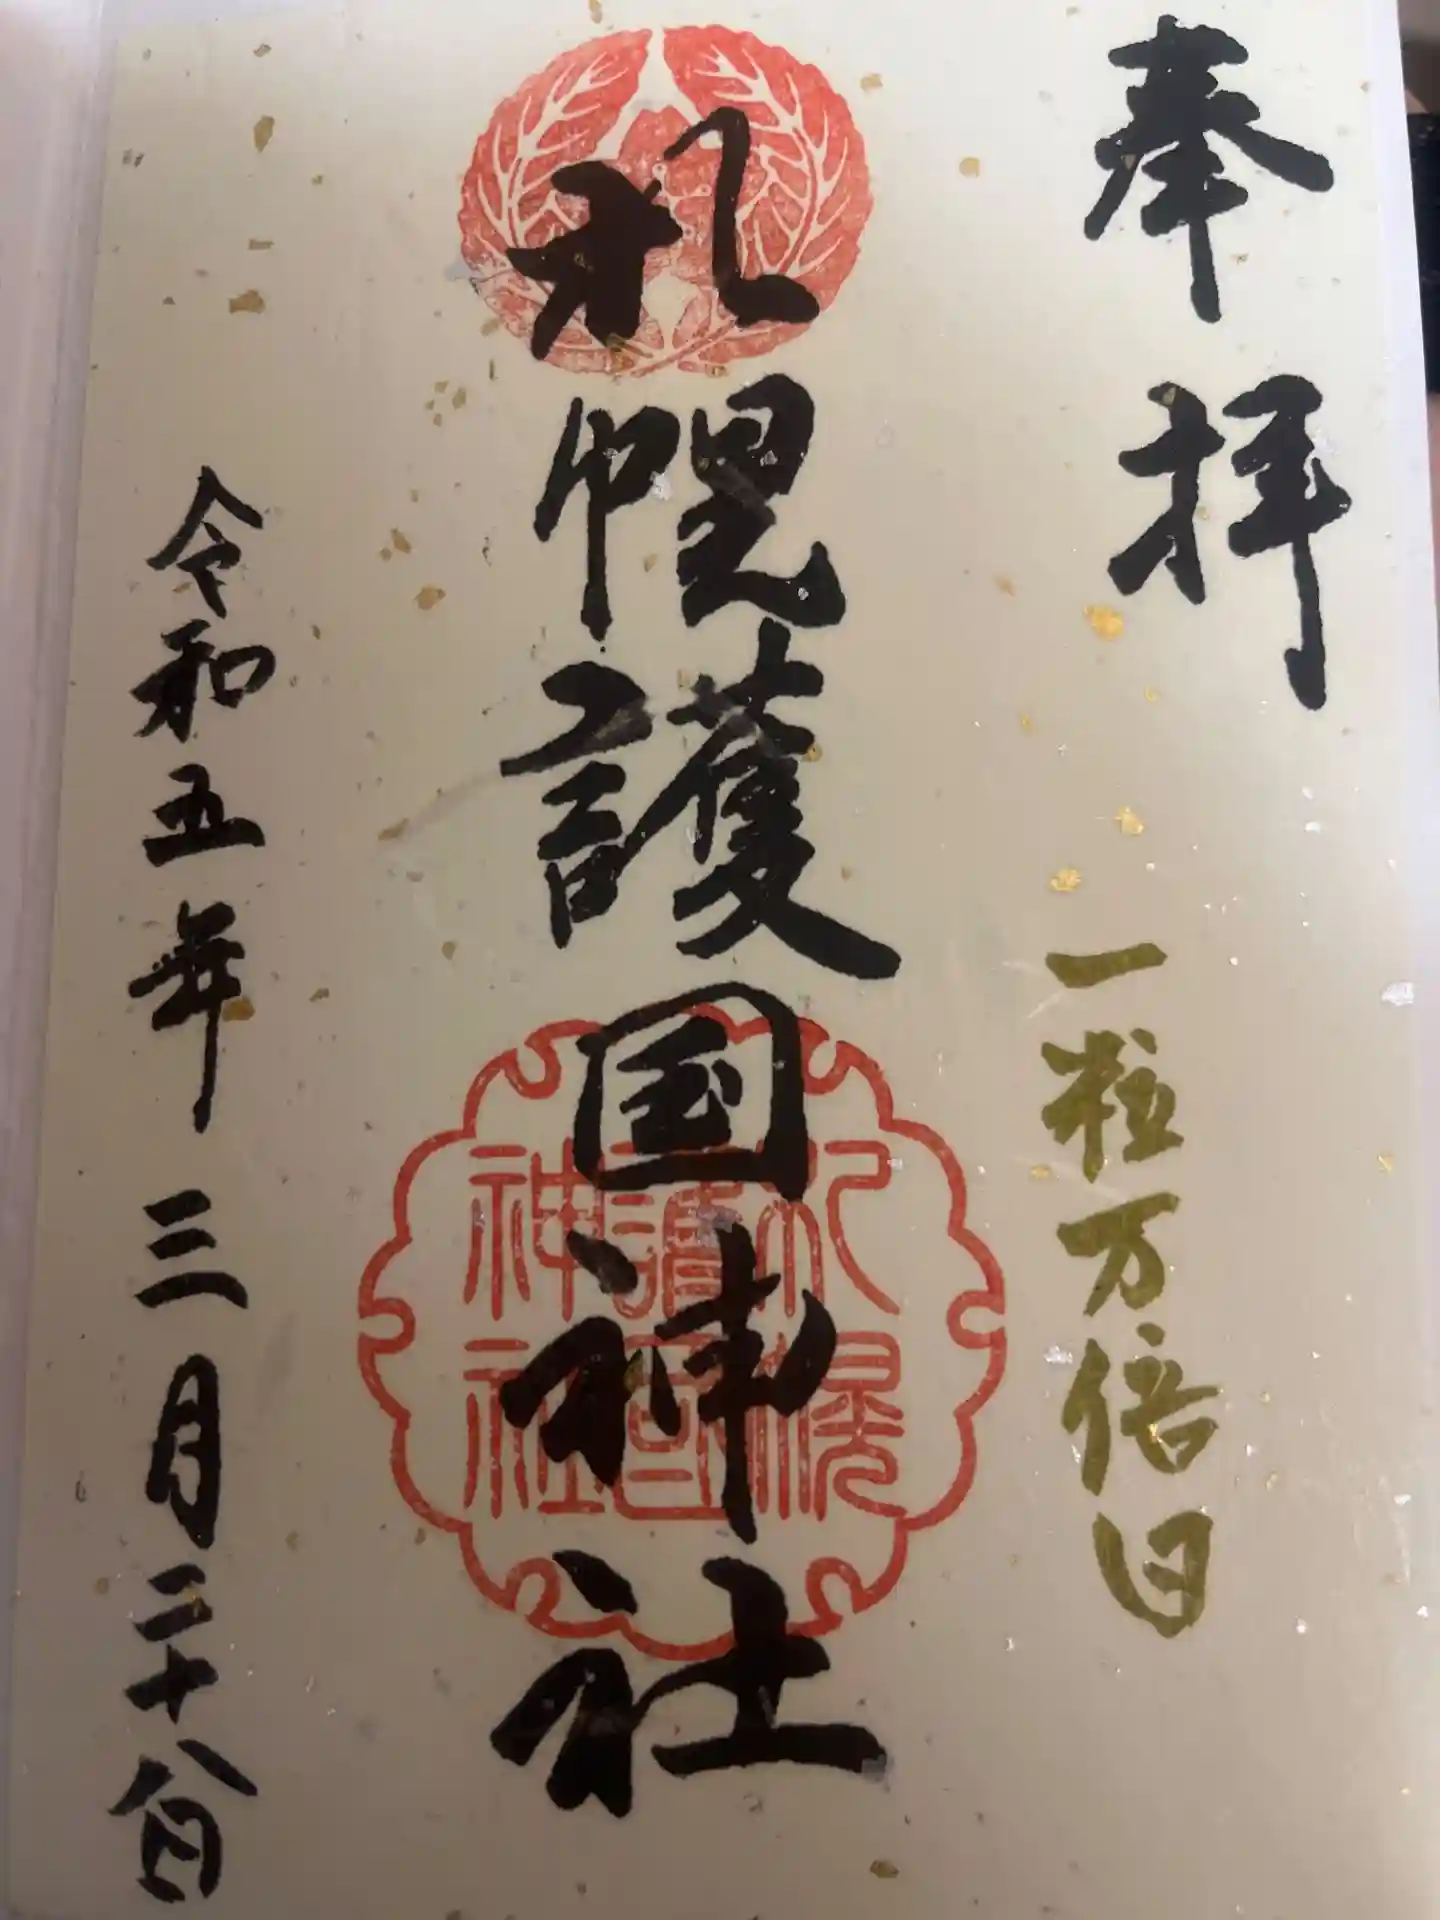 奉拝
一粒万倍日
札幌護国神社
札幌護國神社
令和五年三月二十八日